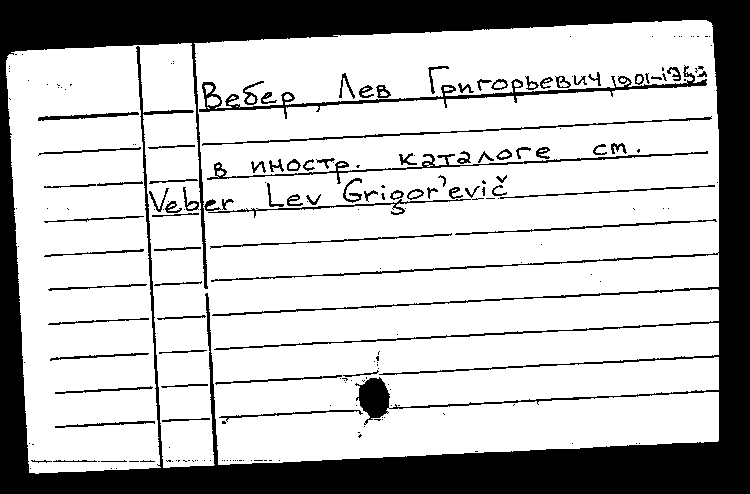 Вебер, Лев Григорьевич, 1901-1953
в иностр. каталоге см.
Veber, Lev Grigor'evič